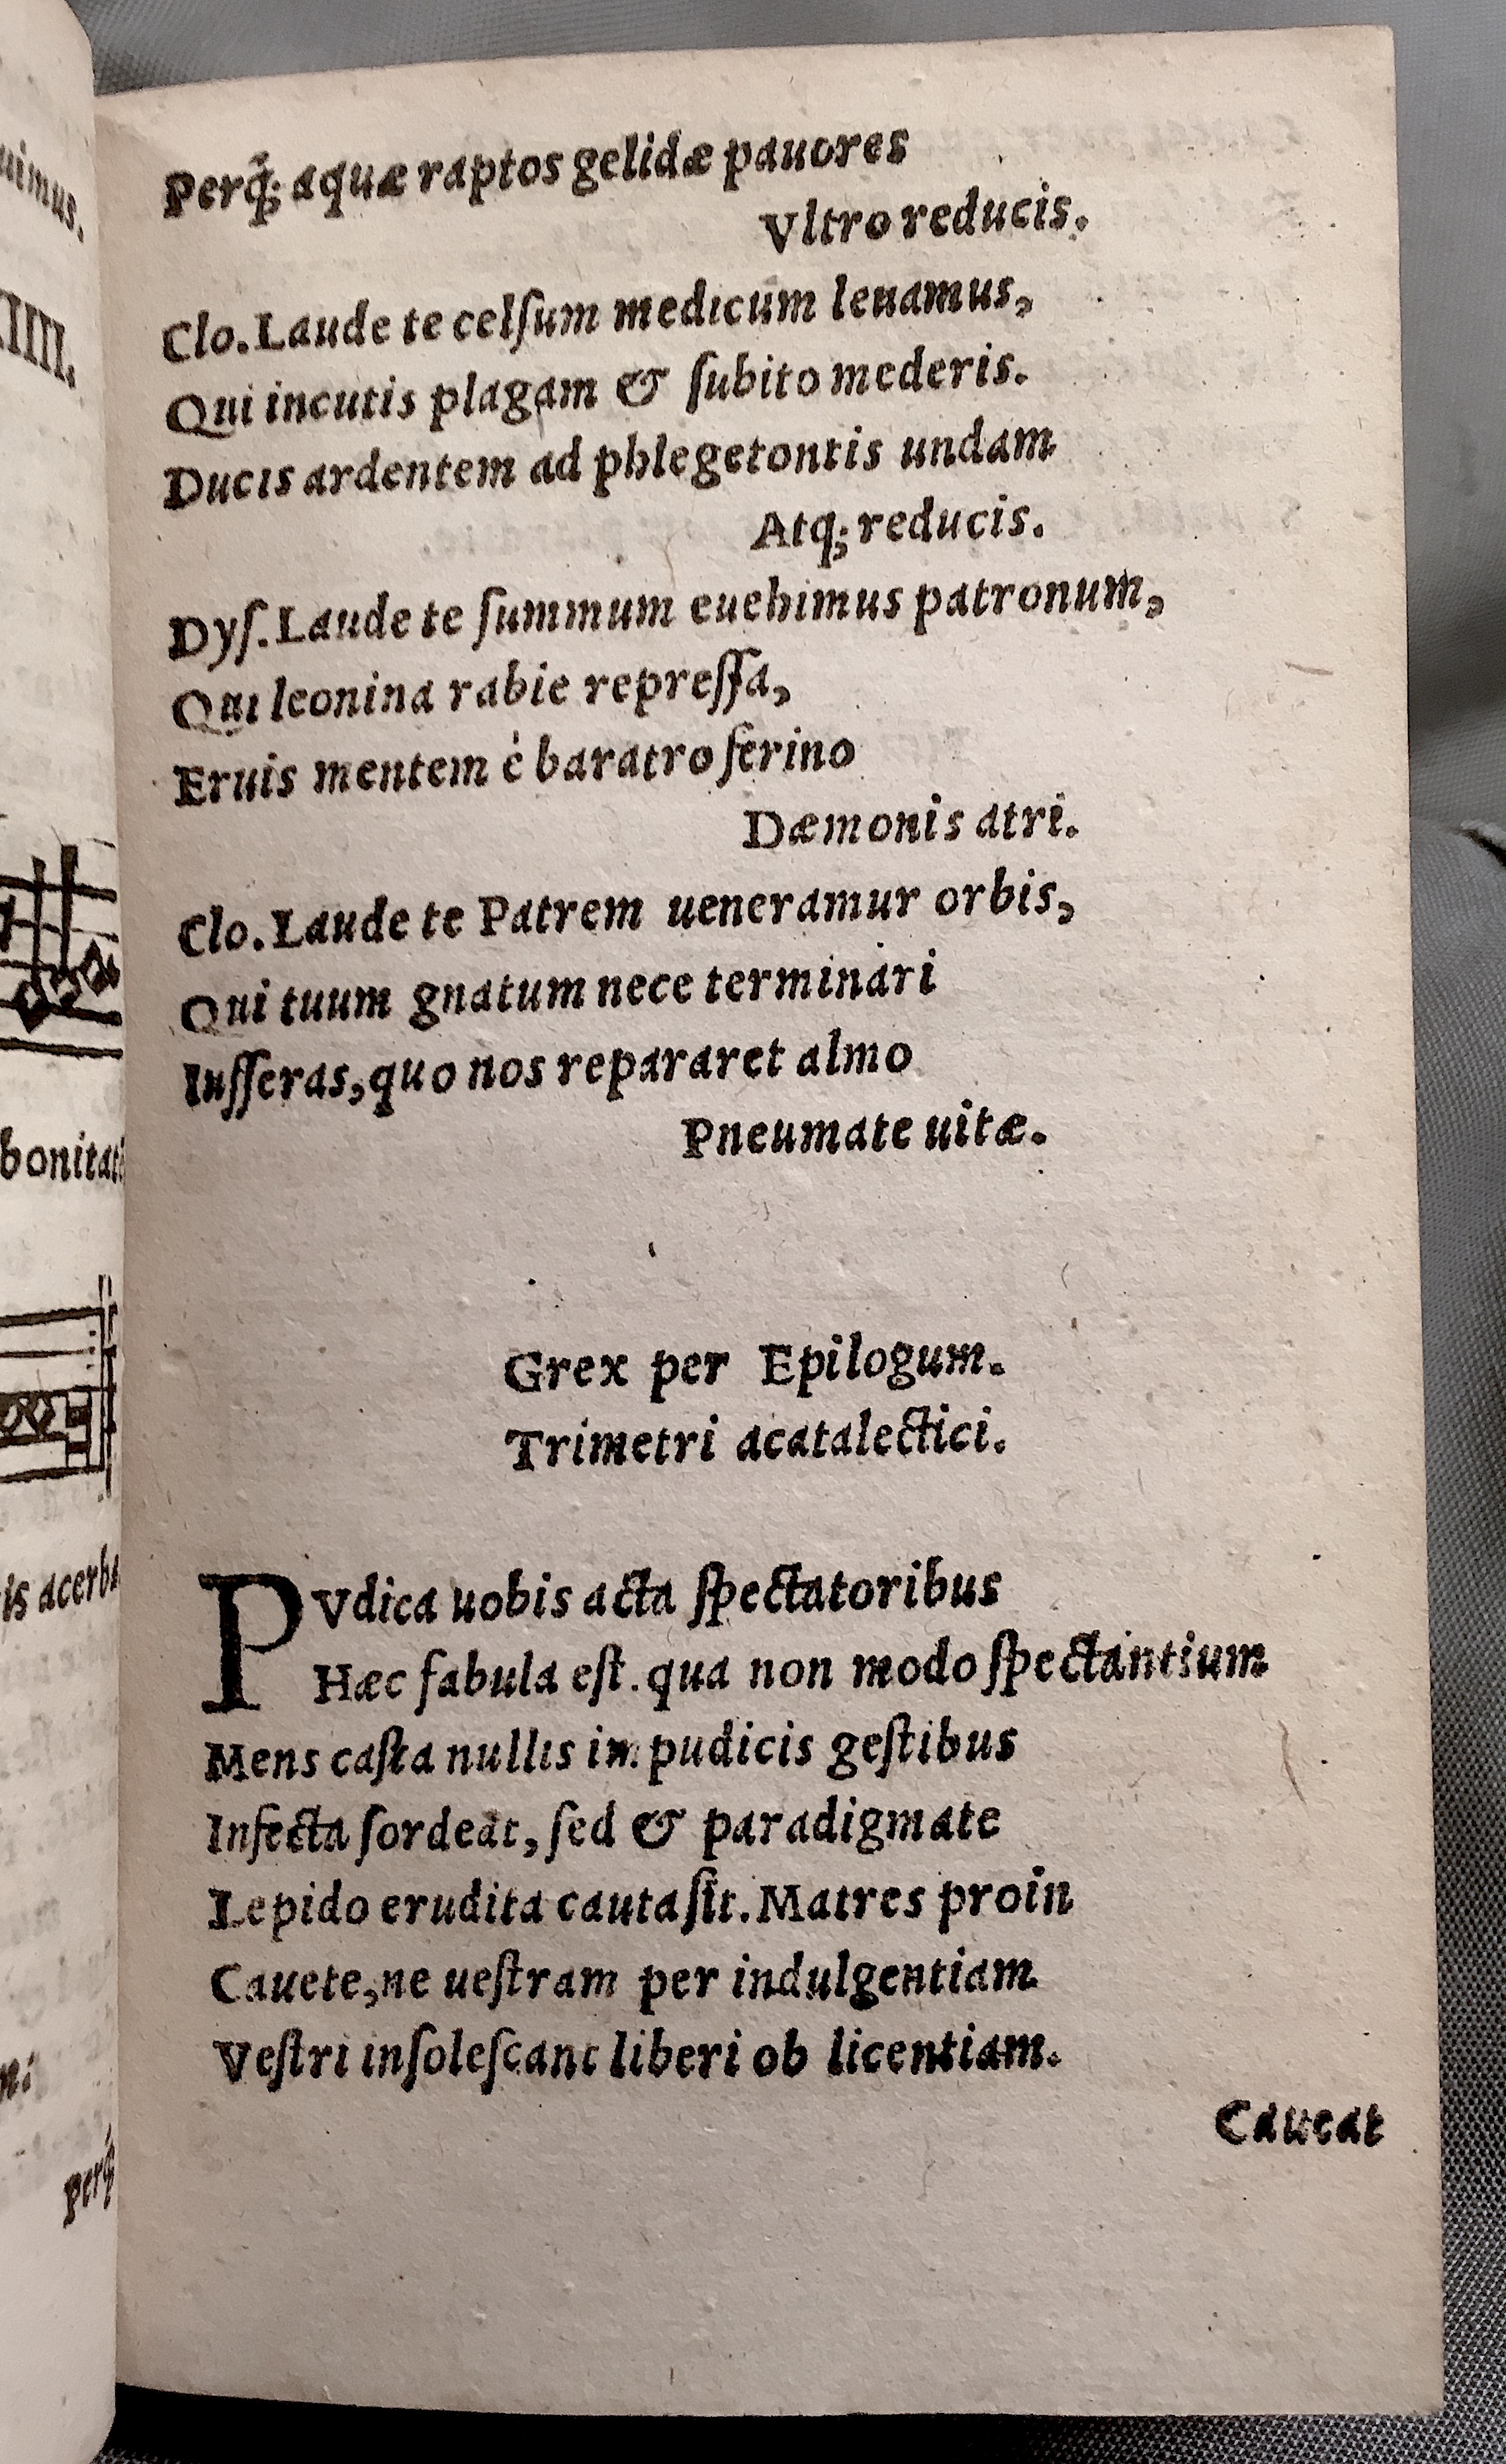 Perq́; aquæ raptos gelidæ pauores
Vltro reducis.
Clo. Laude te celſum medicum leuamus,
Qui incutis plagam & ſubito mederis.
Ducis ardentem ad phlegetontis undam
Atq; reducis.
Dyſ. Laude te ſummum euehimus patronum,
Qui leonina rabie repreſſa,
Eruis mentem è baratro ferino
Dæmonis atri.
Clo. Laude te Patrem ueneramur orbis,
Qui tuum gnatum nece terminari
Iuſſeras, quo nos repararet almo
Pneumate uitæ.
Grex per Epilogum.
Trimetri acatalectici.
PVdica uobis acta ſpectatoribus
Hæc fabula eſt. qua non modo ſpectantium
Mens caſta nullis impudicis geſtibus
Infecta ſordeat, ſed & paradigmate
Lepido erudita cauta ſit. Matres proin
Cauete, ne ueſtram per indulgentiam
Veſtri inſoleſcant liberi ob licentiam.
Caueat
uimus.
IIII.
bonitati
is acerba
ni
perq́